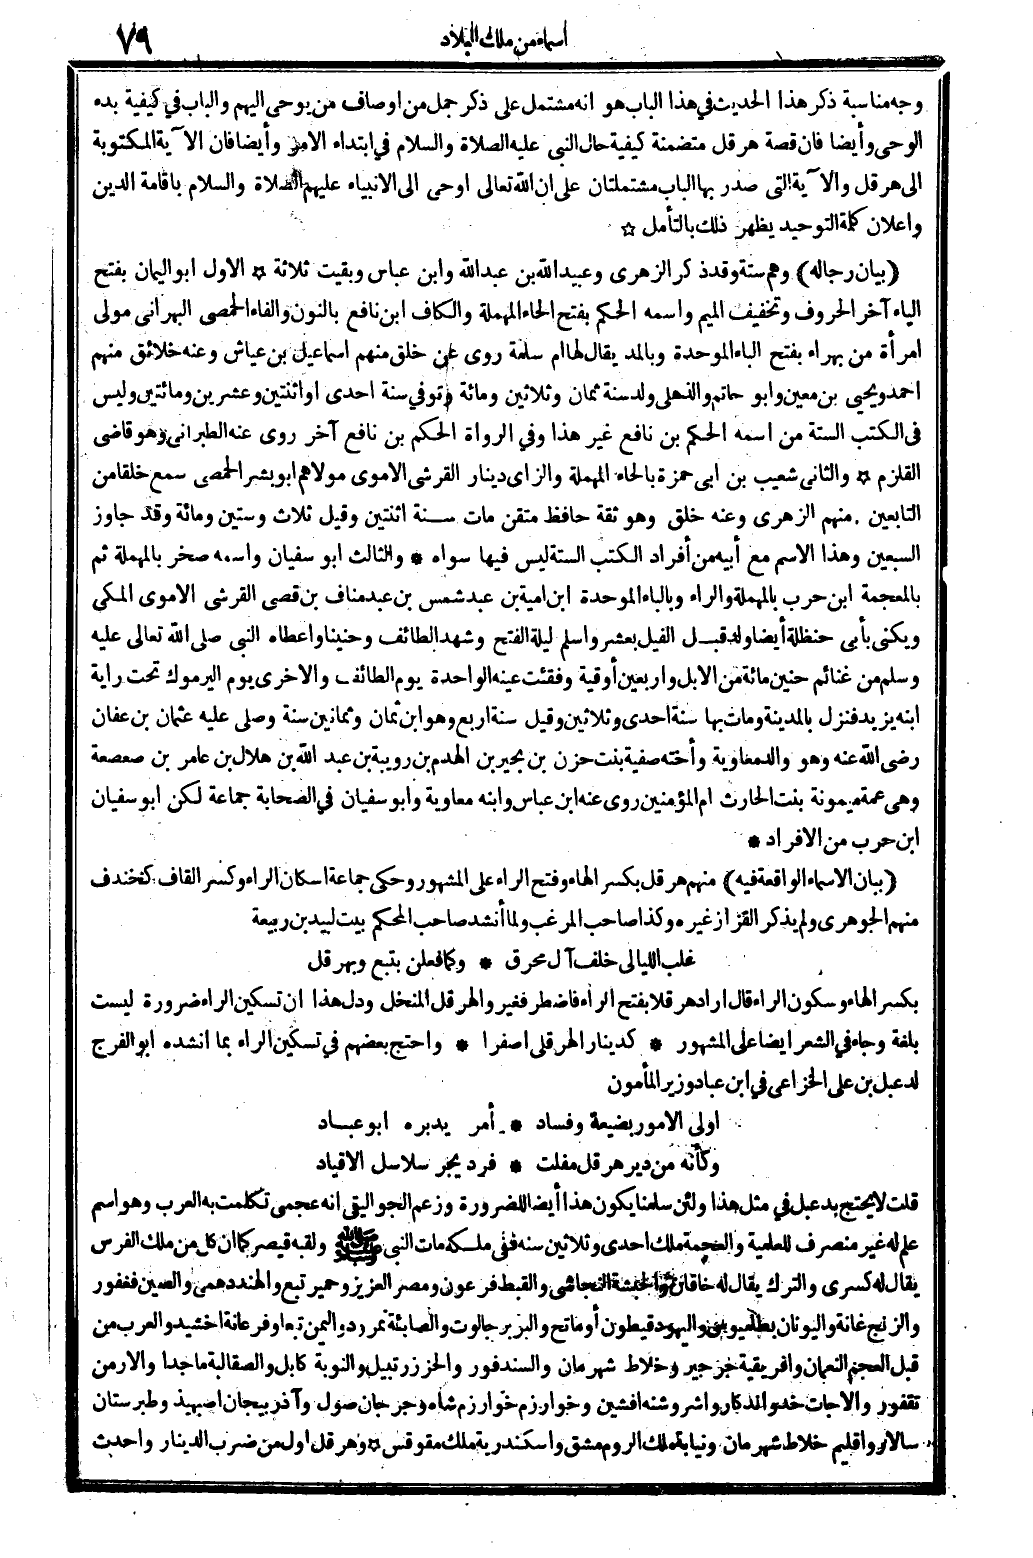 أسماء من ملك البلاد
٧٩
وجه مناسبة ذكر هذا الحديث في هذا الباب هو انه مشتمل على ذكر جمل من اوصاف من يوحى اليهم والباب في كيفية بدء
الوحى وأيضا فان قصة هرقل متضمنة كيفية حال النبى عليه الصلاة والسلام في ابتداء الامر وأيضا فان الآية المكتوبة
الى هرقل والآية التى صدر بها الباب مشتملتان على ان الله تعالى اوحى الى الانبياء عليهم الصلاة والسلام باقامة الدين
واعلان كلمة التوحيد يظهر ذلك بالتأمل ☆
(بيان رجاله) وهم ستة وقد ذكر الزهرى وعبيد الله بن عبد الله وابن عباس وبقيت ثلاثة ☆ الاول ابو اليمان بفتح
الياء آخر الحروف وتخفيف الميم واسمه الحكم بفتح الحاء المهملة والكاف ابن نافع بالنون والفاء الحمصى البهرانى مولى
امرأة من بهراء بفتح الباء الموحدة وبالمد يقال لها ام سلمة روى عن خلق منهم اسماعيل بن عياش وعنه خلائق منهم
احمد ويحيى بن معين وابو حاتم والذهلى ولد سنة ثمان وثلاثين ومائة وتوفي سنة احدى او اثنتين وعشرين ومائتين وليس
في الكتب الستة من اسمه الحكم بن نافع غير هذا وفي الرواة الحكم بن نافع آخر روى عنه الطبرانى وهو قاضى
القلزم ☆ والثانى شعيب بن ابى حمزة بالحاء المهملة والزاى دينار القرشى الاموى مولاهم ابو بشر الحمصى سمع خلقا من
التابعين منهم الزهرى وعنه خلق وهو ثقة حافظ متقن مات سنة اثنتين وقيل ثلاث وستين ومائة وقد جاوز
السبعين وهذا الاسم مع أبيه من أفراد الكتب الستة ليس فيها سواه * والثالث ابو سفيان واسمه صخر بالمهملة ثم
بالمعجمة ابن حرب بالمهملة والراء وبالباء الموحدة ابن امية بن عبد شمس بن عبد مناف بن قصى القرشى الاموى المكى
ويكنى بأبى حنظلة أيضا ولد قبل الفيل بعشر واسلم ليلة الفتح وشهد الطائف وحنينا واعطاه النبى صلى الله تعالى عليه
وسلم من غنائم حنين مائة من الابل واربعين أوقية وفقئت عينه الواحدة يوم الطائف والاخرى يوم اليرموك تحت راية
ابنه يزيد فنزل بالمدينة ومات بها سنة احدى وثلاثين وقيل سنة اربع وهو ابن ثمان وثمانين سنة وصلى عليه عثمان بن عفان
رضى الله عنه وهو والد معاوية وأخته صفية بنت حزن بن بجير بن الهدم بن رويبة بن عبد الله بن هلال بن عامر بن صعصعة
وهى عمة ميمونة بنت الحارث ام المؤمنين روى عنه ابن عباس وابنه معاوية وابو سفيان في الصحابة جماعة لكن ابو سفيان
ابن حرب من الافراد *
(بيان الاسماء الواقعة فيه) منهم هرقل بكسر الهاء وفتح الراء على المشهور وحكى جماعة اسكان الراء وكسر القاف كخندف
منهم الجوهرى ولم يذكر القزاز غيره وكذا صاحب المرغب ولما أنشد صاحب المحكم بيت لبيد بن ربيعة
غلب الليالى خلف آل محرق * وكما فعلن بتبع وبهرقل
بكسر الهاء وسكون الراء قال اراد هرقلا بفتح الراء فاضطر فغير والهرقل المنخل ودل هذا ان تسكين الراء ضرورة ليست
بلغة وجاء في الشعر ايضا على المشهور * كدينار الهرقلى اصفرا * واحتج بعضهم في تسكين الراء بما انشده ابو الفرج
لدعبل بن على الخزاعى في ابن عباد وزير المأمون
اولى الامور بضيعة وفساد * أمر يدبره ابو عباد
وكأنه من دير هرقل مفلت * فرد يجر سلاسل الاقياد
قلت لا يحتج بدعبل في مثل هذا ولئن سلمنا يكون هذا أيضا للضرورة وزعم الجواليقى انه عجمى تكلمت به العرب وهو اسم
علم له غير منصرف للعلمية والعجمة ملك احدى وثلاثين سنه ففى ملكه مات النبى ﷺ ولقبه قيصر كما ان كل من ملك الفرس
يقال له كسرى والترك يقال له خاقان والحبشة النجاشى والقبط فرعون ومصر العزيز وحمير تبع والهند دهمى والصين فغفور
والزنج غانة واليونان بطلميوس واليهود قيطون أو ماتح والبربر جالوت والصابئة نمرود واليمن تبعا وفرعانة اخشيد والعرب من
قبل العجم النعمان وافريقية جرجير وخلاط شهرمان والسندفور والحزز رتبيل والنوبة كابل والصقالبة ماجدا والارمن
تقفور والاجات خدواند كار واشروشنه افشين وخوارزم خوارزم شاه وجرجان صول وآذربيجان اصبهيذ وطبرستان
سالار واقليم خلاط شهرمان ونيابة ملك الروم مشق واسكندرية ملك مقوقس ☆ وهرقل اول من ضرب الدينار واحدث